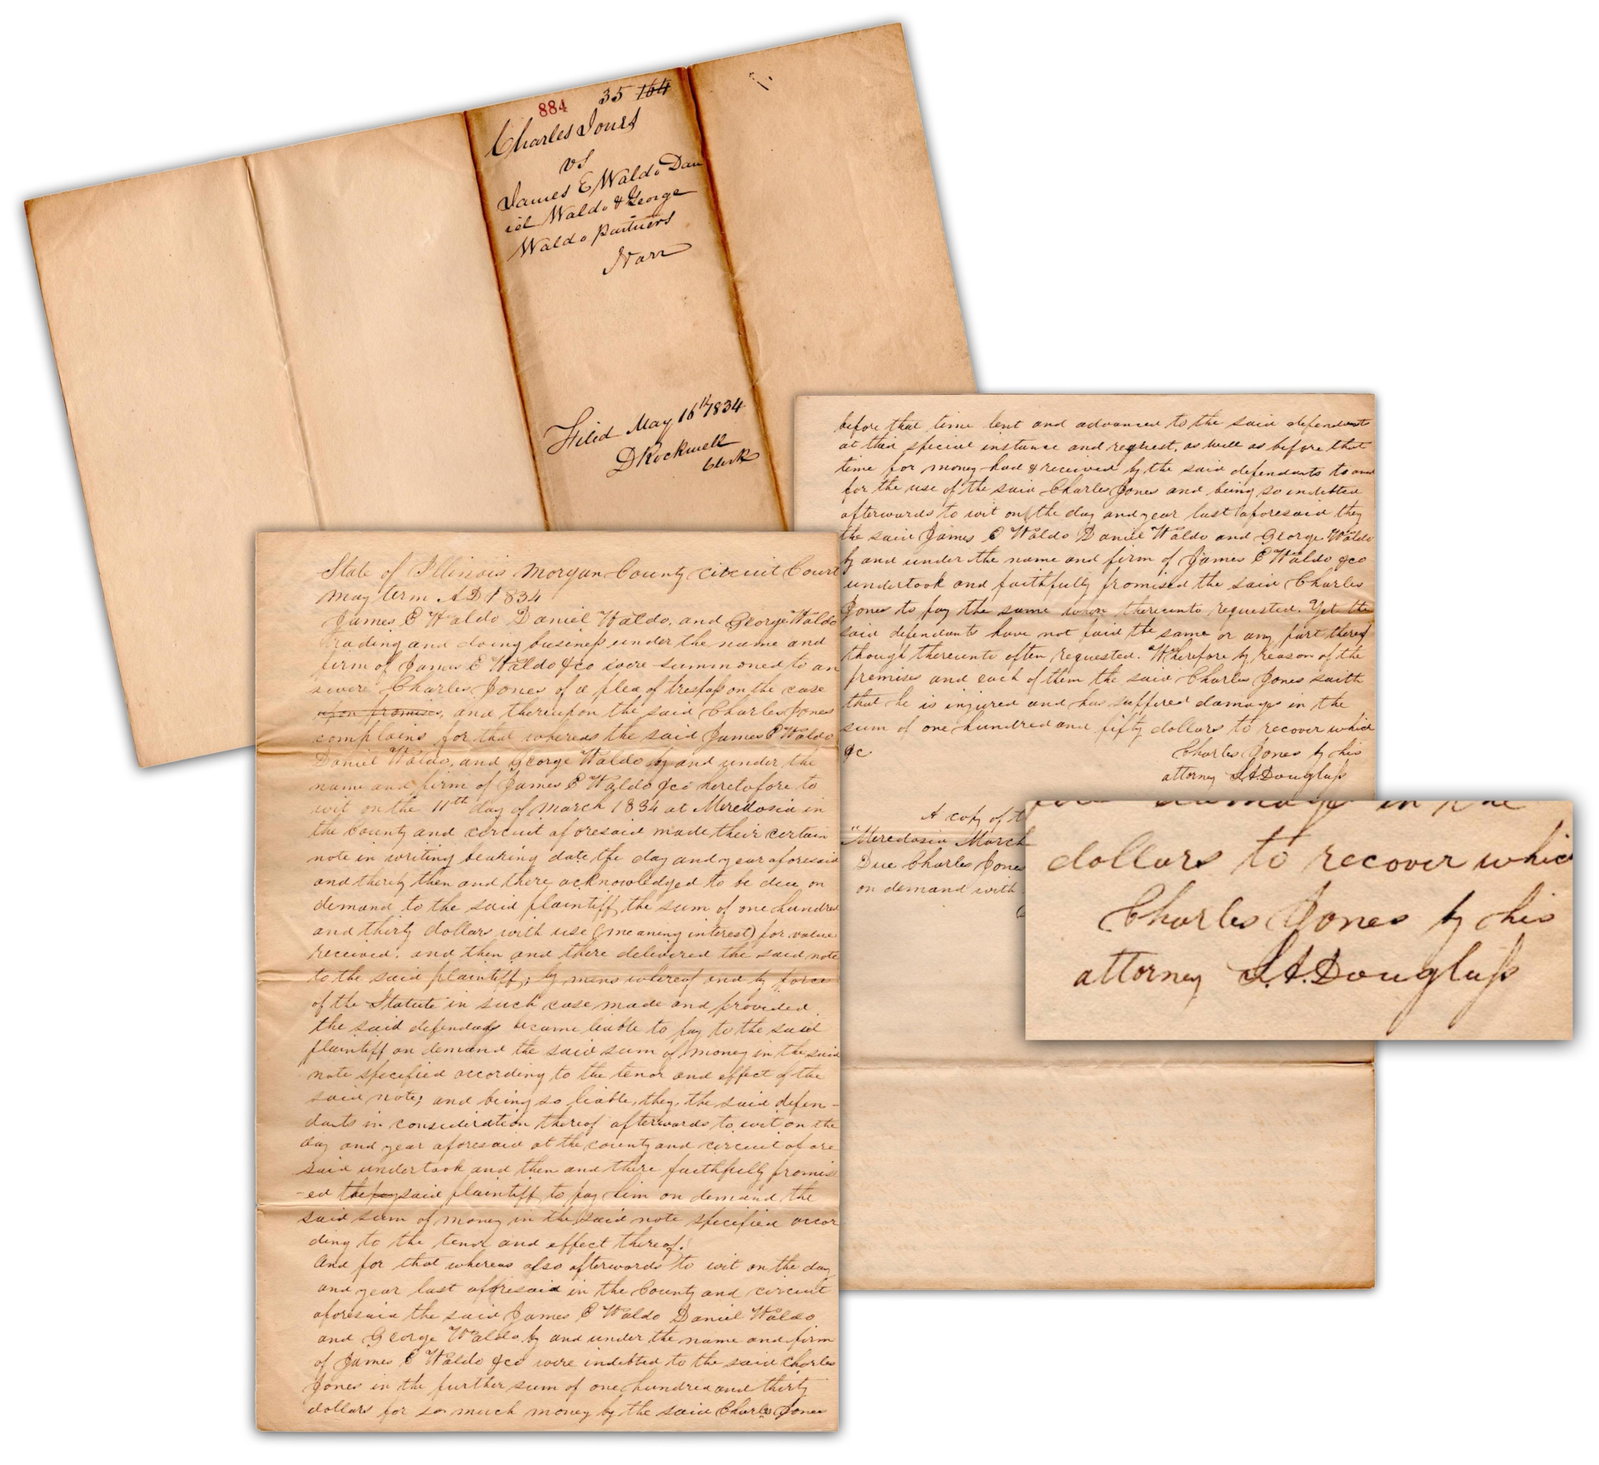 884 35 164
Charles Jones
vs
James E Waldo Dan
iel Waldo & George
Waldo Partners
Narr
Filed May 16th 1834
D Rockwell
Clerk
State of Illinois Morgan County circuit Court
May term AD 1834
James E Waldo Daniel Waldo, and George Waldo
trading and doing business under the name and
firm of James E Waldo &co were summoned to an
swere Charles Jones of a plea of trespass on the case
upon promises, and thereupon the said Charles Jones
complains for that whereas the said James E Waldo
Daniel Waldo, and George Waldo by and under the
name and firm of James E Waldo &co heretofore to
wit on the 11th day of March 1834 at Meredosia in
the County and circuit aforesaid made their certain
note in writing bearing date the day and year aforesaid
and thereby then and there acknowledged to be due on
demand to the said plaintiff the sum of one hundred
and thirty dollars with use (meaning interest) for value
received, and then and there delivered the said note
to the said plaintiff; by means whereof and by force
of the Statute in such case made and provided
the said defendants became liable to pay to the said
plaintiff on demand the said sum of money in the said
note specified according to the tenor and effect of the
said note; and being so liable, they, the said defen-
dants in consideration thereof afterwards to wit on the
day and year aforesaid at the county and circuit afore
said undertook and then and there faithfully promis
-ed the pay said plaintiff to pay him on demand the
said sum of money in the said note specified accor
ding to the tenor and effect thereof.
And for that whereas also afterwards to wit on the day
and year last aforesaid in the County and circuit
aforesaid the said James E Waldo Daniel Waldo
and George Waldo by and under the name and firm
of James E Waldo &co were indebted to the said Charles
Jones in the further sum of one hundred and thirty
dollars for so much money by the said Charles Jones
before that time lent and advanced to the said defendants
at their special instance and request, as well as before that
time for money had & received by the said defendants to and
for the use of the said Charles Jones and being so indebted
afterwards to wit on the day and year last aforesaid they
the said James E Waldo Daniel Waldo and George Waldo
by and under the name and firm of James E Waldo &co
undertook and faithfully promised the said Charles
Jones to pay the same when thereunto requested. Yet the
said defendants have not paid the same or any part thereof
though thereunto often requested. Wherefore by reason of the
premises and each of them the said Charles Jones saith
that he is injured and has suffered damages in the
sum of one hundred and fifty dollars to recover which
&c
Charles Jones by his
attorney S.A. Douglass
A copy of t
"Meredosia March
Due Charles Jones
on demand with
damage in the
dollars to recover which
Charles Jones by his
attorney S.A. Douglass